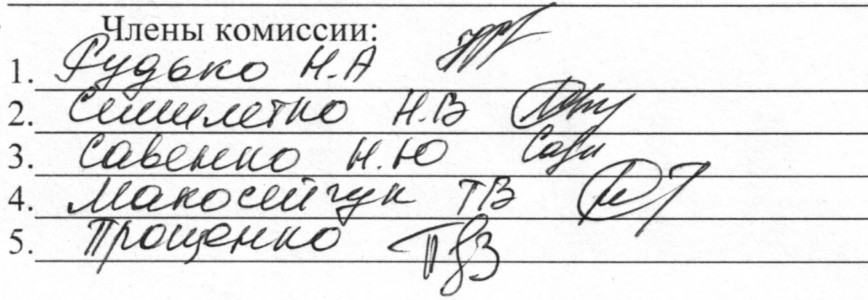 Члены комиссии:
1. Рудько Н.А
2. Н.В
3. Савенко Н.Ю
4. Макосейчук ТВ
5. Трощенко